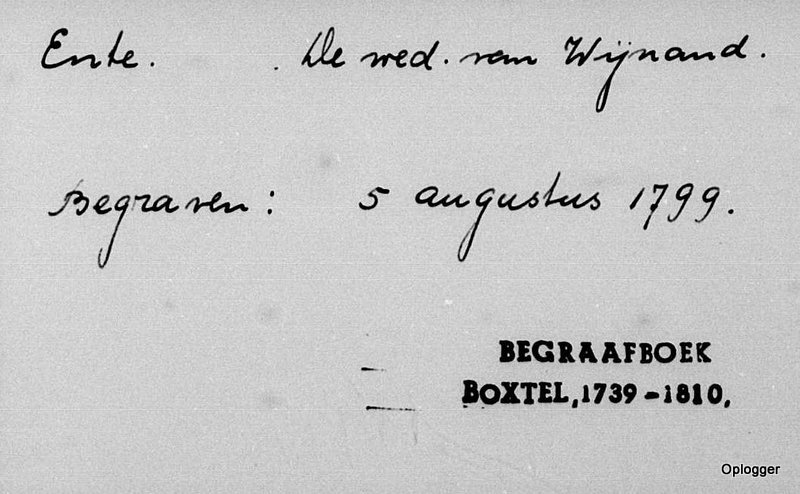 Ente. De wed. van Wijnand.
Begraven: 5 augustus 1799.
BEGRAAFBOEK
BOXTEL, 1739-1810,
Oplogger